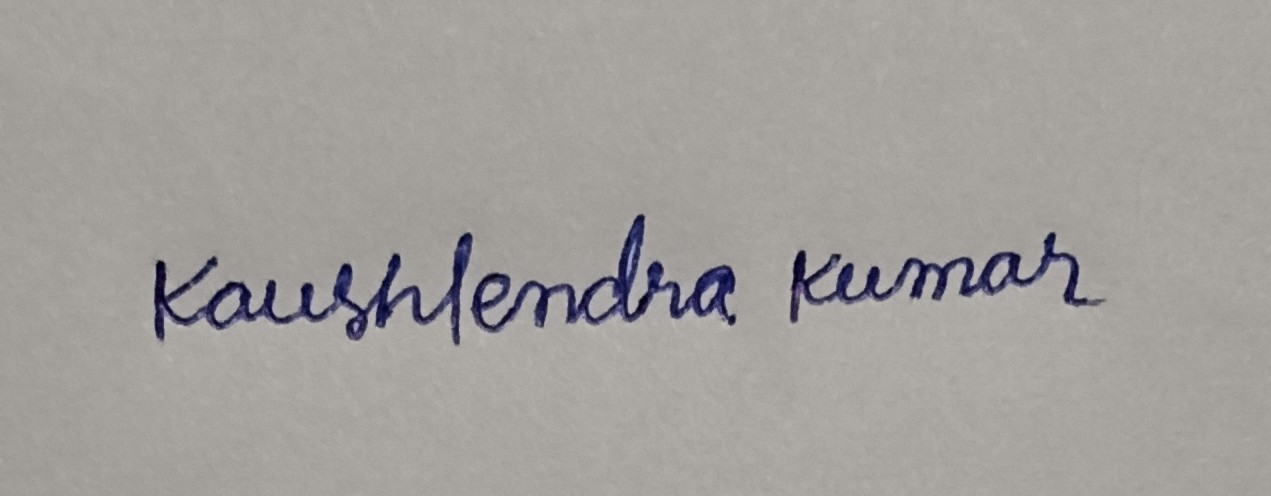 Kaushlendra Kumar